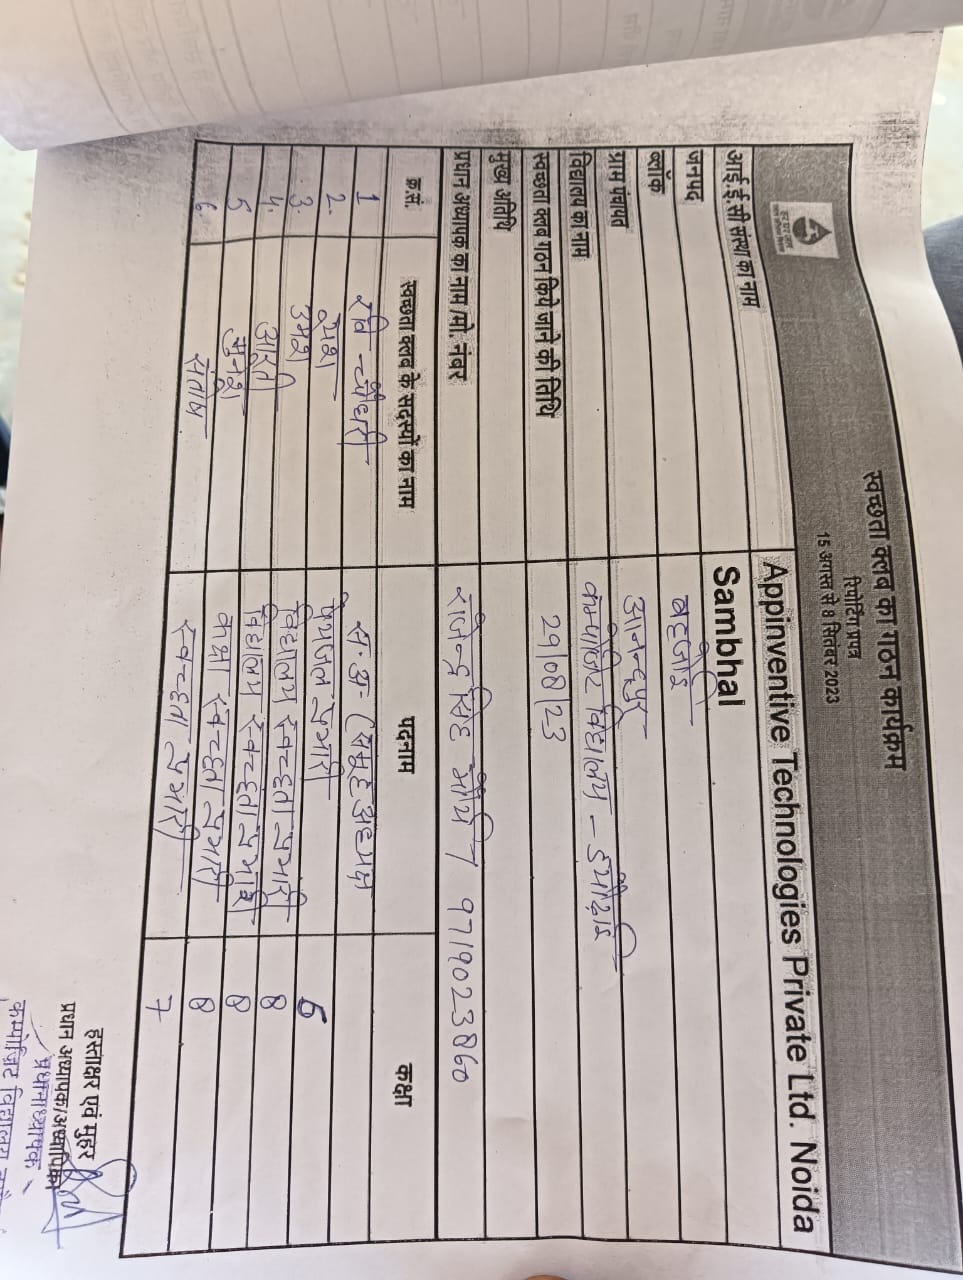 स्वच्छता क्लव का गठन कार्यक्रम
रिपोर्टिंग प्रपत्र
15 अगस्त से 8 सितंबर 2023
हर घर जल
जल जीवन मिशन
आई.ई.सी संस्था का नाम Appinventive Technologies Private Ltd. Noida
जनपद Sambhal
ब्लॉक बहजोई
ग्राम पंचायत आनन्दपुर
विद्यालय का नाम कम्पोजिट विद्यालय -
स्वच्छता क्लव गठन किये जाने की तिथि 29/08/23
मुख्य अतिथि
प्रधान अध्यापक का नाम /मो. नंबर राजेन्द्र सिंह मौर्य / 9719023860
क्र.सं. स्वच्छता क्लव के सदस्यों का नाम पदनाम कक्षा
1 रवि चौधरी स० अ० (समूह अध्यक्ष
2. पेयजल प्रभारी
3. उमेश विद्यालय स्वच्छता प्रभारी 6
4. आरती विद्यालय स्वच्छता प्रभारी 8
5 मुनेश कक्षा स्वच्छता प्रभारी 8
6. संतोष स्वच्छता प्रभारी 8
7
हस्ताक्षर एवं मुहर
प्रधान अध्यापक/अध्यापिका
प्रधानाध्यापक
कम्पोजिट विद्यालय